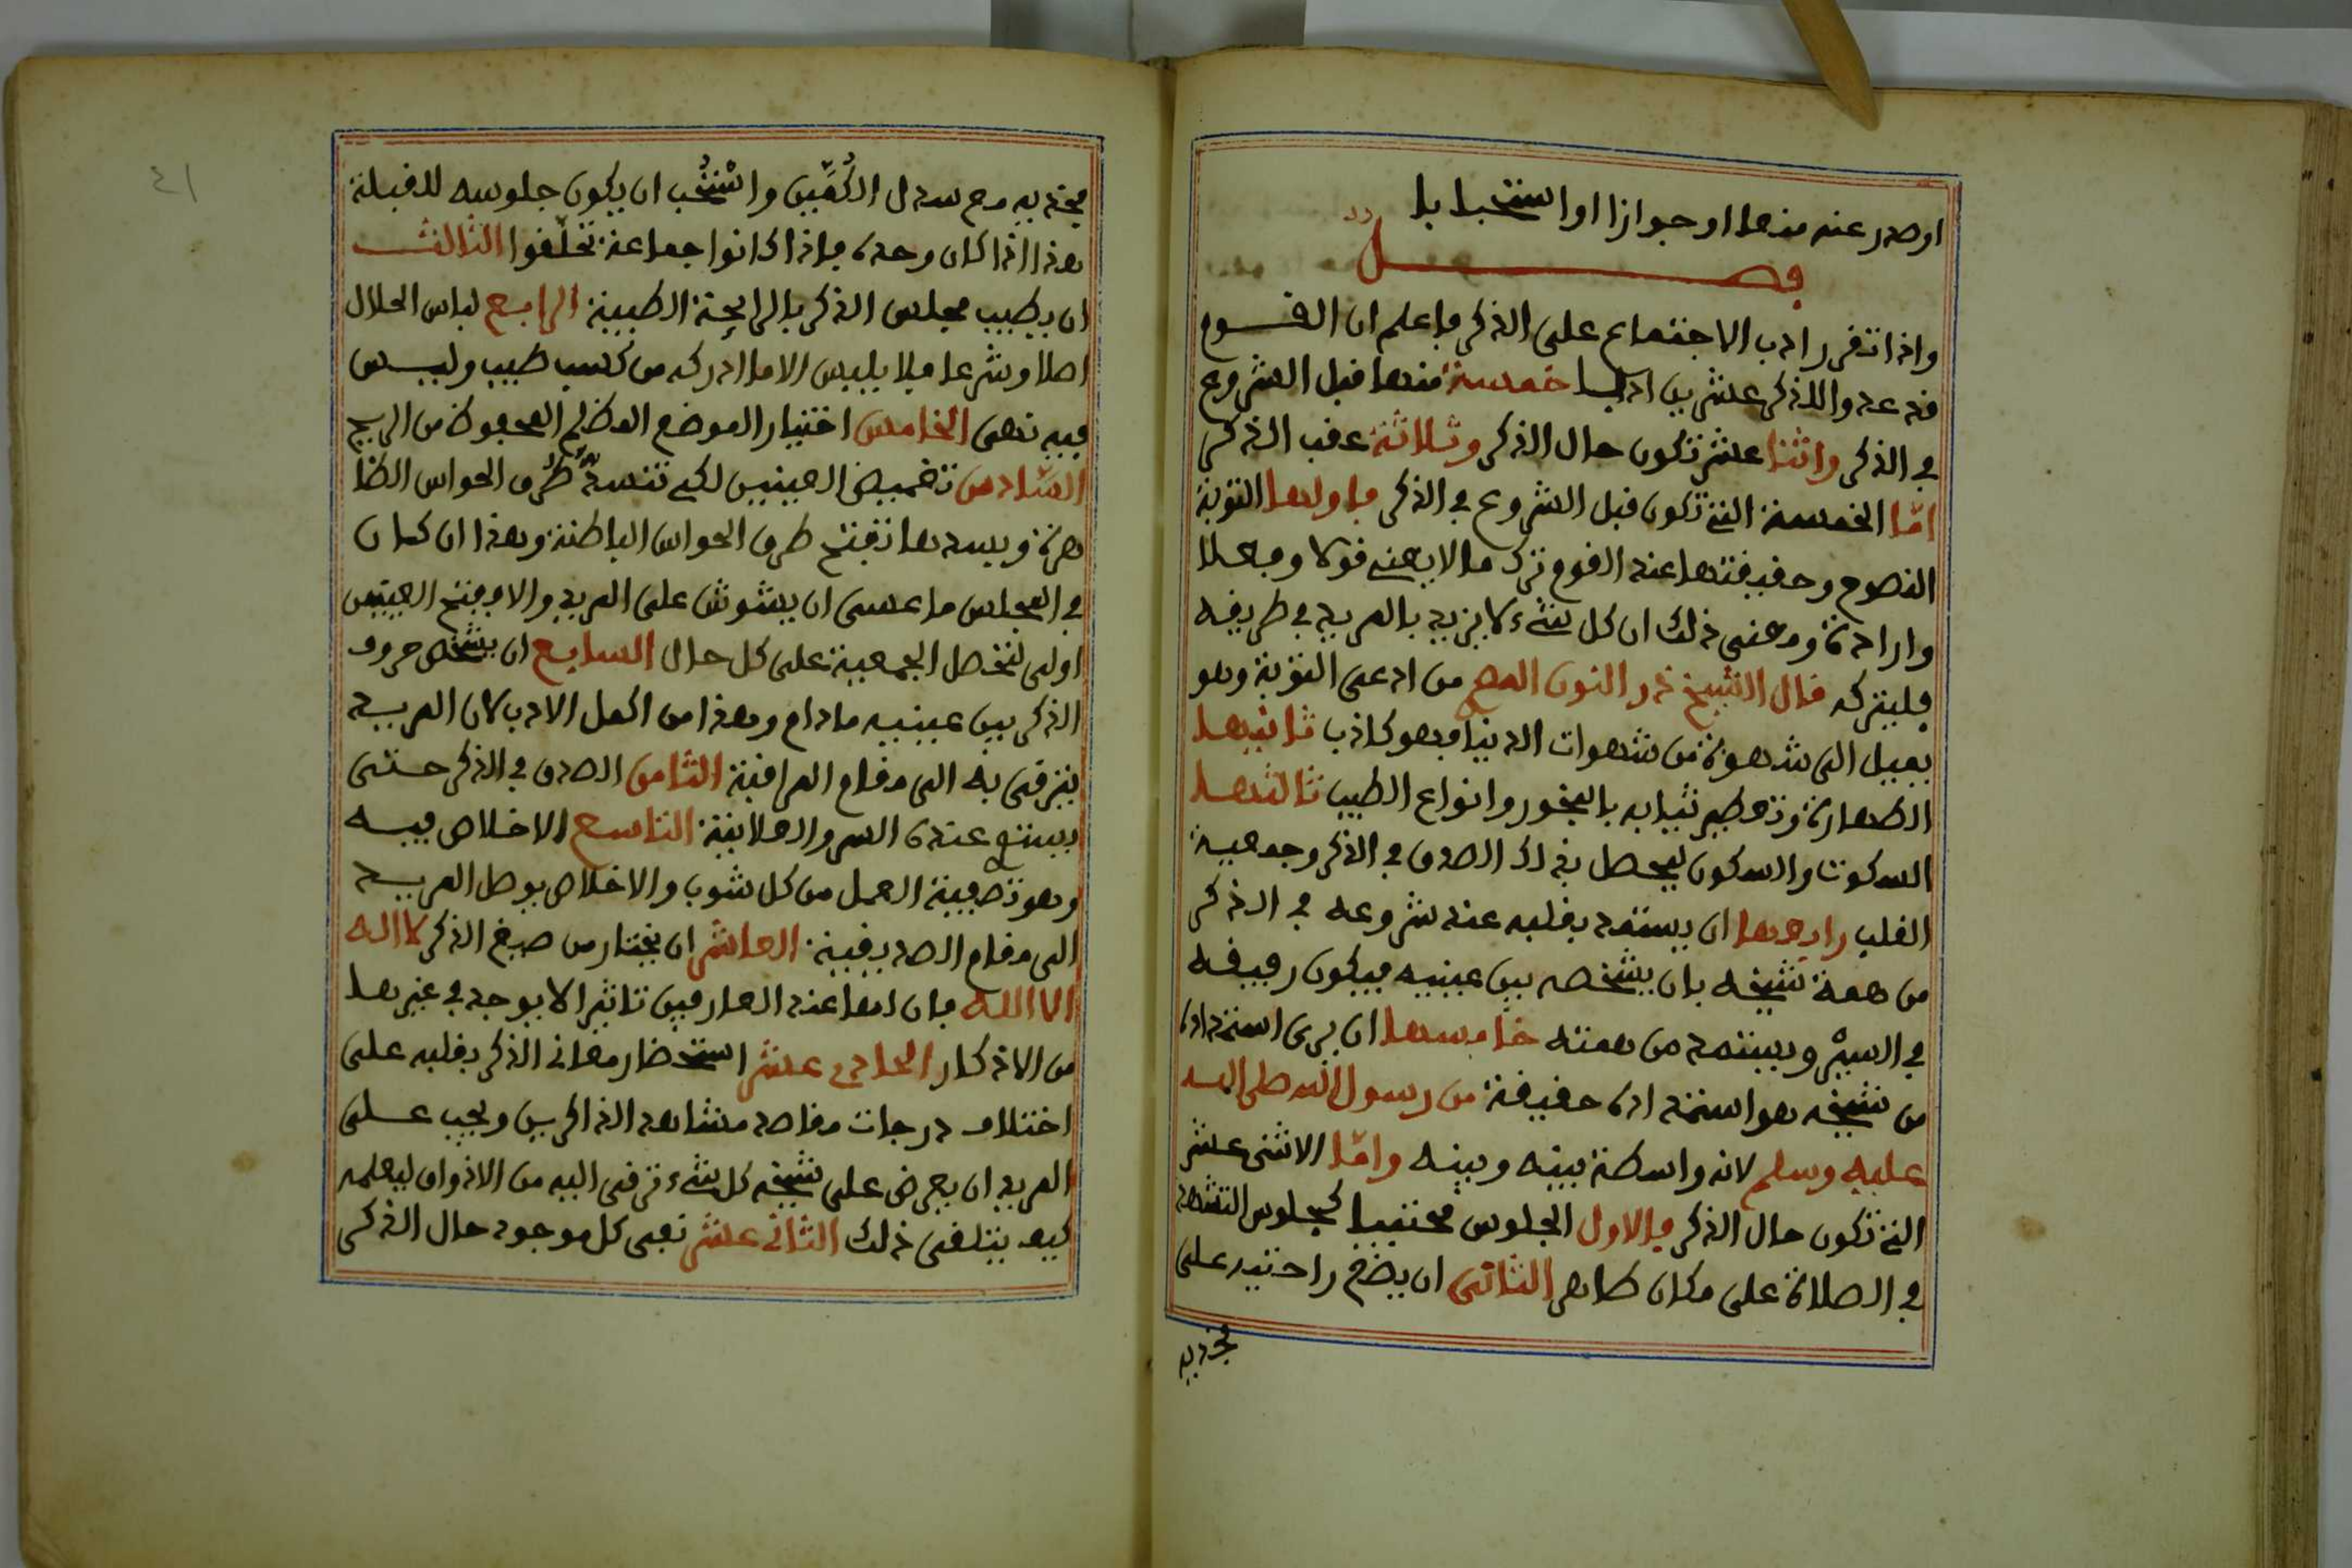 اوصدر عنه منها او جوازا او استحبابا
فصل
واذا تقرر ادب الاجتماع على الذكر فاعلم ان القوم
قد عدوا للذكر عشرين ادبا خمسة منها قبل الشروع
في الذكر واثنا عشر تكون حال الذكر وثلاثة عقب الذكر
امّا الخمسة التي تكون قبل الشروع في الذكر فاولها التوبة
النصوح وحقيقتها عند القوم ترك ما لا يعني قولا وفعلا
وارادة ومعنى ذلك ان كل شيء لا يزيد بالمريد في طريقه
فليتركه قال الشيخ ذو النون المصري من ادعى التوبة وهو
يميل الى شهوة من شهوات الدنيا فهو كاذب ثانيها
الطهارة وتعطير ثيابه بالبخور وانواع الطيب ثالثها
السكوت والسكون ليحصل بذلك الصدق في الذكر وجمعية
القلب رابعها ان يستمد بقلبه عند شروعه في الذكر
من همة شيخه بان يشخصه بين عينيه فيكون رفيقه
في السير ويستمد من همته خامسها ان يرى استمداده
من شيخه هو استمداده حقيقة من رسول الله صلى الله
عليه وسلم لانه واسطة بينه وبينه وامّا الاثنى عشر
التي تكون حال الذكر فالاول الجلوس محتبيا كجلوس التشهد
في الصلاة على مكان طاهر الثاني ان يضع راحتيه على
فخذيه
فخذيه مع سدل الكُمّين واسْتُحِب ان يكون جلوسه للقبلة
هذا اذا كان وحده فاذا كانوا جماعة تحلّقوا الثالث
ان يطيب مجلس الذكر بالرايحة الطيبة الرابع لباس الحلال
اصلا وشرعا فلا يلبس الا ما ادركه من كسب طيب وليس
فيه نهى الخامس اختيار الموضع المظلم المحفوظ من الريح
السّادس تغميض العينين لكي تنسد طرق الحواس الظا
هرة وبسدها تفتح طرق الحواس الباطنة وهذا ان كان
في المجلس ما عسى ان يشوش على المريد والا ففتح العينين
اولى لتحصل الجمعية على كل حال السابع ان يشخص حروف
الذكر بين عينيه مادام وهذا من اكمل الادب لان المريد
يترقى به الى مقام المراقبة الثامن الصدق في الذكر حتى
يستوي عنده السر والعلانية التاسع الاخلاص فيه
وهو تصفية العمل من كل شوب والاخلاص يوصل المريد
الى مقام الصديقية العاشر ان يختار من صيغ الذكر لا اله
الا الله فان لها عند العارفين تاثيرا لا يوجد في غيرها
من الاذكار الحادي عشر استحضار معانى الذكر بقلبه على
اختلاف درجات مقاصد مشاهد الذاكرين ويجب على
المريد ان يعرض على شيخه كل شيء ترقى اليه من الاذواق ليعلمه
كيف يتلقى ذلك الثاني عشر نفى كل موجود حال الذكر
٤١